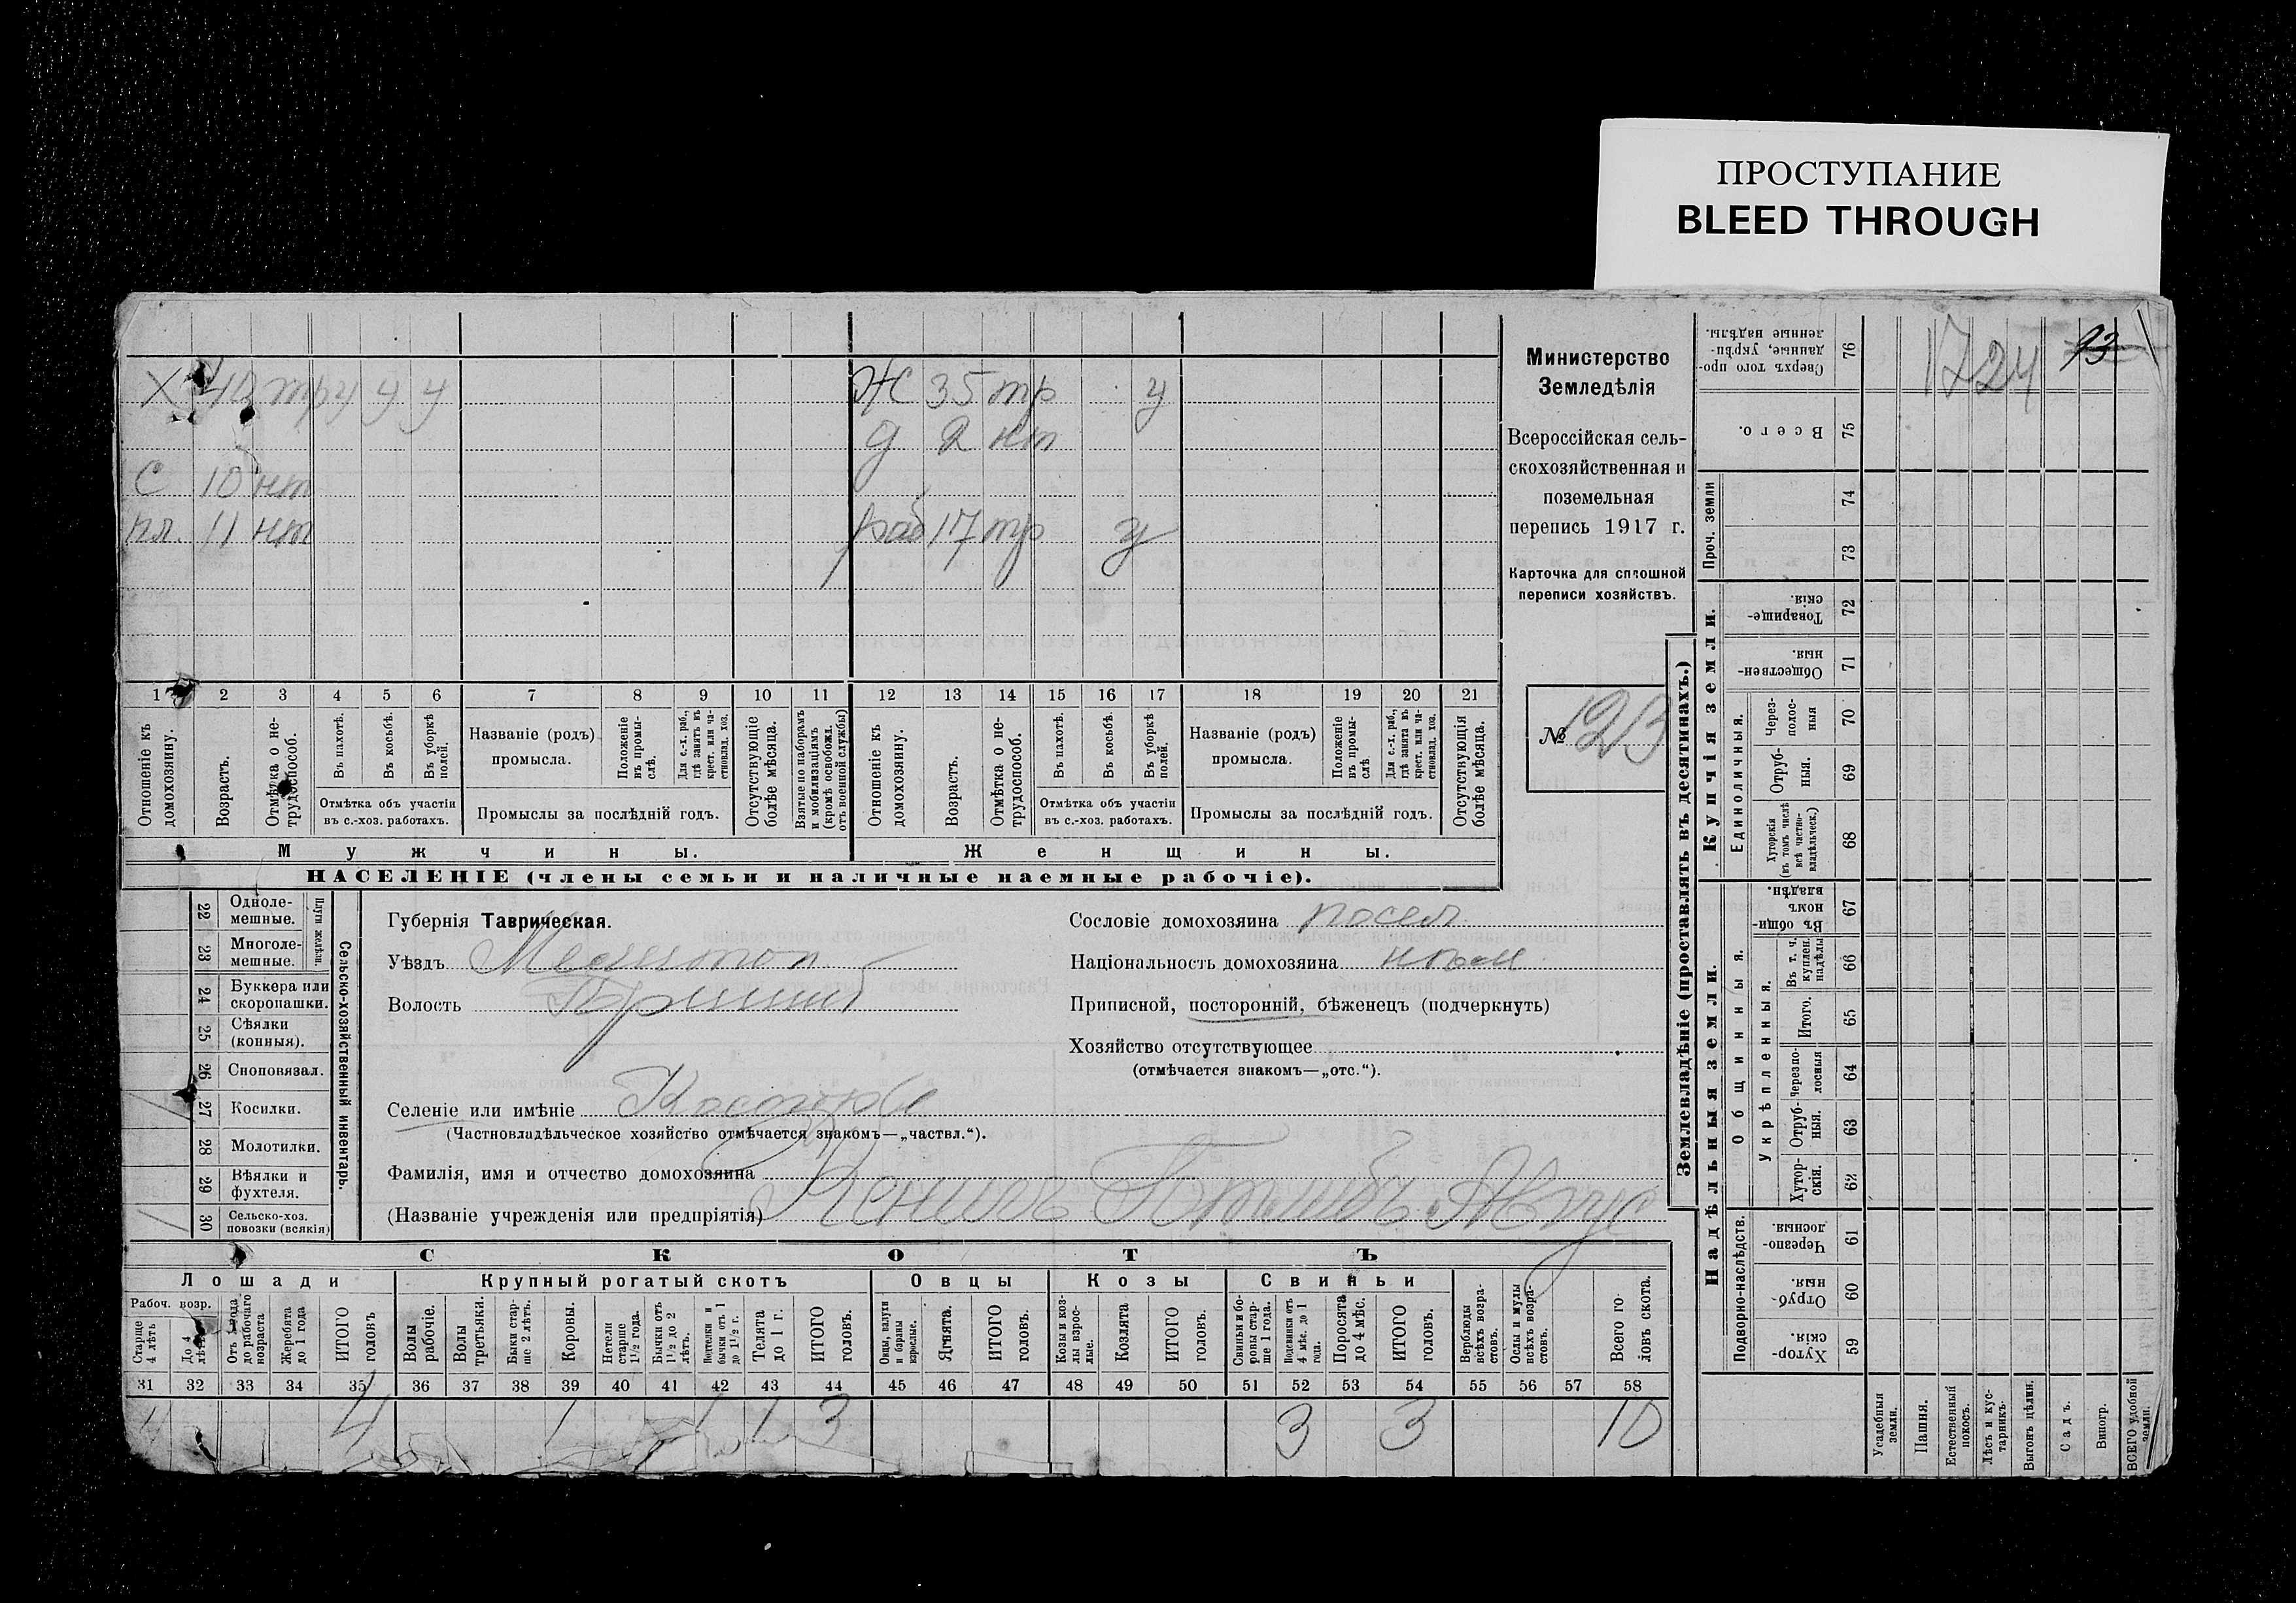 ПРОСТУПАНИЕ
BLEED THROUGH
Х 40 тр у у у
Ж 35 тр у
д 2 нт
С 10 нт
пл. 11 нт
раб 17 тр у
1 2 3 4 5 6 7 8 9 10 11 12 13 14 15 16 17 18 19 20 21
Отношеніе къ домохозяину.
Возрастъ.
Отмѣтка о нетрудоспособ.
Въ пахотѣ.
Въ косьбѣ.
Въ уборкѣ полей.
Отмѣтка объ участіи въ с.-хоз. работахъ.
Названіе (родъ) промысла.
Положеніе въ промыслѣ.
Для с.-х. раб., гдѣ занятъ въ крест. или частновлад. хоз.
Промыслы за послѣдній годъ.
Отсутствующіе болѣе мѣсяца.
Взятые по наборамъ и мобилизаціямъ (кромѣ освобожд. отъ военной службы)
Отношеніе къ домохозяину.
Возрастъ.
Отмѣтка о нетрудоспособ.
Въ пахотѣ.
Въ косьбѣ.
Въ уборкѣ полей.
Отмѣтка объ участіи въ с.-хоз. работахъ.
Названіе (родъ) промысла.
Положеніе въ промыслѣ
Для с.-х. раб., гдѣ занята въ крест. или частновлад. хоз.
Промыслы за послѣдній годъ.
Отсутствующія болѣе мѣсяца.
Мужчины.
Женщины.
НАСЕЛЕНІЕ (члены семьи и наличные наемные рабочіе).
Министерство
Земледѣлія
Всероссійская сель-
скохозяйственная и
поземельная
перепись 1917 г.
Карточка для сплошной
переписи хозяйствъ.
№ 1213
22 Однолемешные.
23 Многолемешные.
Плуги желѣзн.
24 Буккера или скоропашки.
25 Сѣялки (конныя).
26 Сноповязал.
27 Косилки.
28 Молотилки.
29 Вѣялки и фухтеля.
30 Сельско-хоз. повозки (всякія)
Сельско-хозяйственный инвентарь.
Губернія Таврическая.
Уѣздъ Мелитоп
Волость Пришиб
Селеніе или имѣніе
(Частновладѣльческое хозяйство отмѣчается знакомъ—„частвл.“).
Фамилія, имя и отчество домохозяина
(Названіе учрежденія или предпріятія)
Готлибъ Авгус
Сословіе домохозяина посел
Національность домохозяина нѣм
Приписной, посторонній, бѣженецъ (подчеркнуть)
Хозяйство отсутствующее
(отмѣчается знакомъ—„отс.“).
СКОТЪ
Лошади
Крупный рогатый скотъ
Овцы
Козы
Свиньи
Рабоч. возр.
Старше 4 лѣтъ
До 4 лѣтъ
Отъ 1 года до рабочаго возраста
Жеребята до 1 года
ИТОГО головъ
Волы рабочіе.
Волы третьяки.
Быки старше 2 лѣтъ.
Коровы.
Нетели старше 1½ года.
Бычки отъ 1½ до 2 лѣтъ.
Подтелки и бычки отъ 1 до 1½ г.
Телята до 1 г.
ИТОГО головъ.
Овцы, валухи и бараны взрослые.
Ягнята.
ИТОГО головъ.
Козы и козлы взрослые.
Козлята
ИТОГО головъ.
Свиньи и боровы старше 1 года.
Подсвинки отъ 4 мѣс. до 1 года.
Поросята до 4 мѣс.
ИТОГО головъ.
Верблюды всѣхъ возрастовъ.
Ослы и мулы всѣхъ возрастовъ.
Всего головъ скота.
31 32 33 34 35 36 37 38 39 40 41 42 43 44 45 46 47 48 49 50 51 52 53 54 55 56 57 58
4 4 1 1 1 3 3 3 10
Землевладѣніе (проставлять въ десятинахъ.)
Надѣльныя земли.
Купчія земли.
Проч. земли
Подворно-наслѣдств.
Общинныя.
Укрѣпленныя.
Единоличныя.
76 Сверхъ того проданные, укрѣпленные надѣлы.
75 Всего.
74
73
72 Товарищескія.
71 Общественныя.
70 Через-полосныя
69 Отрубныя.
68 Хуторскія (въ томъ числѣ всѣ частновладѣльческ.)
67 Въ общиномъ владѣн.
66 Въ т. ч. куплен. надѣлы
65 Итого.
64 Черезполосныя
63 Отрубныя.
62 Хуторскія.
61 Черезполосныя.
60 Отрубныя.
59 Хуторскія.
Усадебныя земли.
Пашня.
Естественный покосъ.
Лѣсъ и кустарникъ.
Выгонъ цѣлин.
Садъ.
Виногр.
ВСЕГО удобной земли.
1724
93